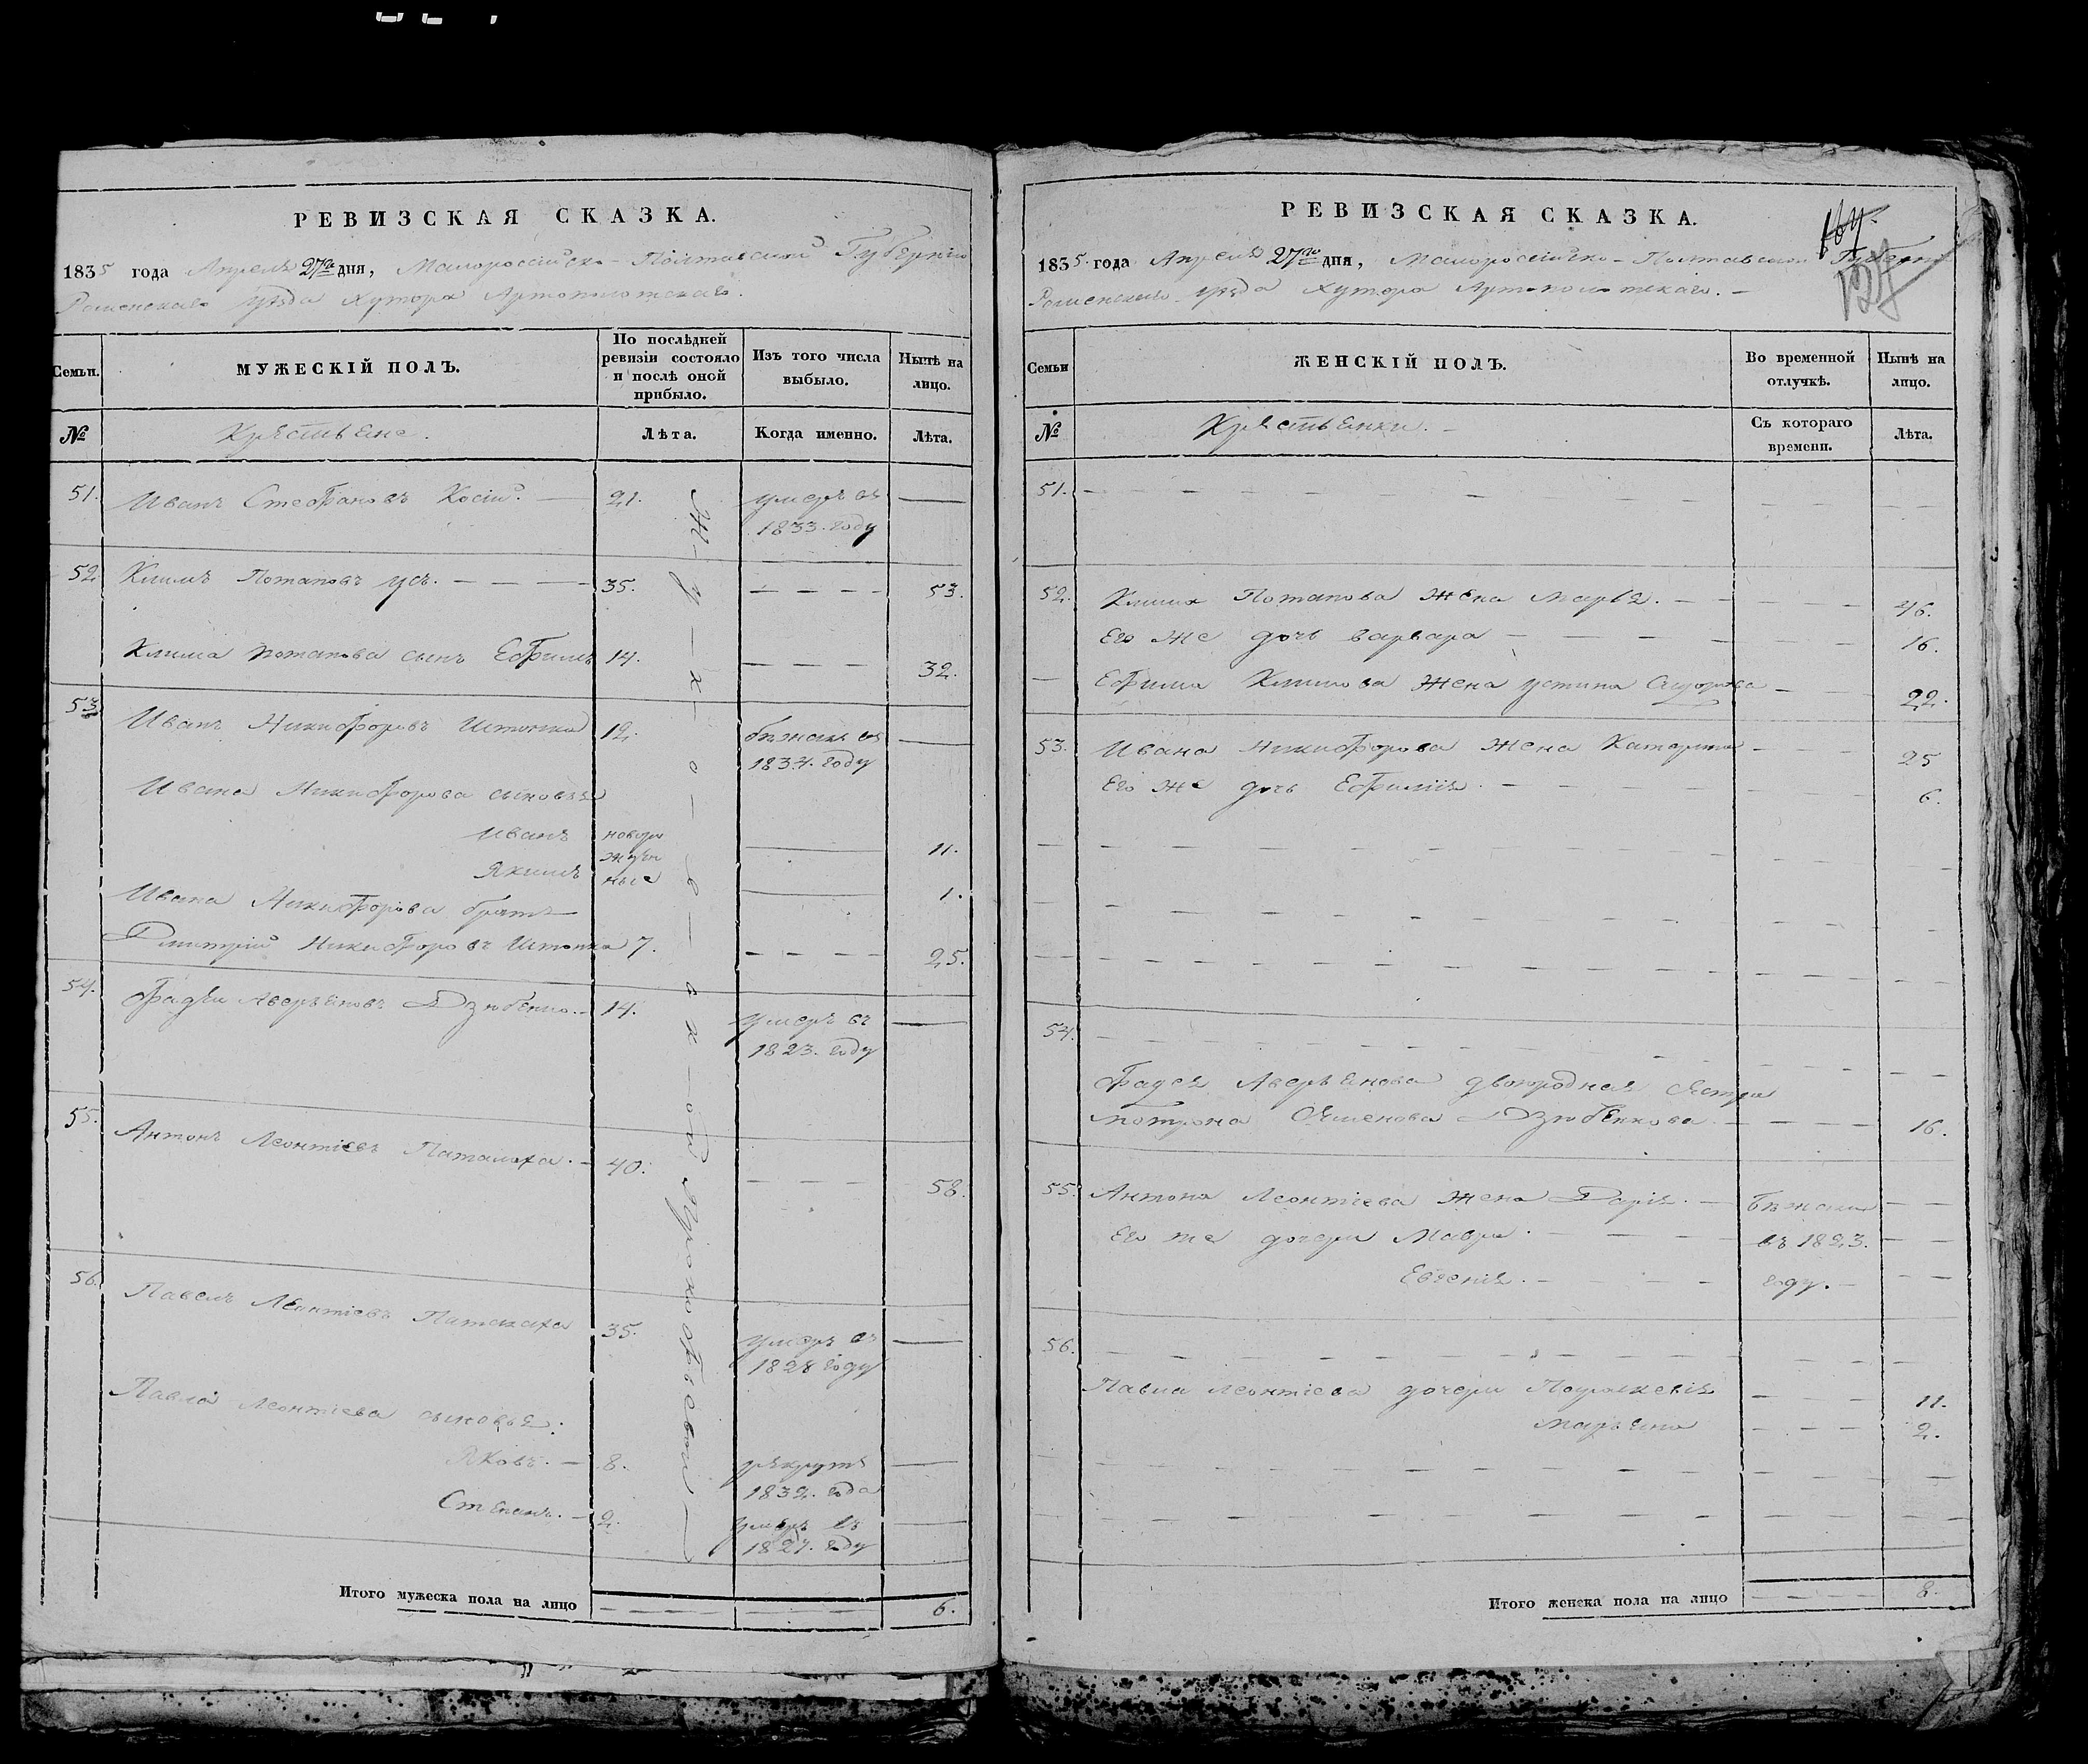 РЕВИЗСКАЯ СКАЗКА.
1835 года Апреля 27го дня, Малороссійско-Полтавской Губерніи
Роменскаго уѣзда Хутора Артополотскаго.
Семьи.
МУЖЕСКІЙ ПОЛЪ.
По послѣдней ревизіи состояло и послѣ оной прибыло.
Изъ того числа выбыло.
Нынѣ на лицо.
№
Крестьяне.
Лѣта.
Когда именно.
Лѣта.
51. Иванъ Стефановъ Косій. — 21. умеръ въ —
1833. году
52 Климъ Потаповъ Усъ. — — — 35. — — — — 53.
Клима Потапова сынъ Ефимъ 14. — — — — 32.
53 Иванъ Никифоровъ 12. бѣжалъ въ —
1834. году
Ивана Никифорова сыновья
Иванъ новорожденные — 11.
Якимъ — 1.
Ивана Никифорова братъ
Дмитрій Никифоровъ 7. — — — — 25.
54. Фадѣй Аверьяновъ Дзюбенко. — 14. умеръ въ —
1823. году
55. Антонъ Леонтіевъ Паталаха. — 40. — — — 58.
56. Павелъ Леонтіевъ Паталаха 35. умеръ въ —
1828 году
Павла Леонтіева сыновья:
Яковъ. — 8. рекрутъ —
1832. года
Степанъ. — 2. умеръ въ —
1827. году
Итого мужеска пола на лицо — — — — — — — 6.
РЕВИЗСКАЯ СКАЗКА.
127
1835. года Апреля 27го дня, Малороссійско-Полтавской Губерніи
Роменскаго уѣзда Хутора Артополотскаго. —
Семьи
ЖЕНСКІЙ ПОЛЪ.
Во временной отлучкѣ.
Нынѣ на лицо.
№
Крестьянки. —
Съ котораго времени.
Лѣта.
51. — — — — —
52. Клима Потапова жена Марья. — — — — 46.
Его же дочь Варвара — — — — 16.
Ефима Климова жена Устина — — — 22.
53. Ивана Никифорова жена Катерина — — — 25
Его же дочь Ефимія. — — — — 6.
54. — — — — —
Фадея Аверьянова двоюродная сестра
Мотрона Семенова Дзюбенкова. — — — — 16.
55. Антона Леонтіева жена Дарія. — Бѣжали — —
Его же дочери Мавра. — — — въ 1823. — —
Евгенія. — — — году. — — —
56. — — — — —
Павла Леонтіева дочери Параскевія — — — 11.
Марьяна — — — 2.
Итого женска пола на лицо — — — — 8.